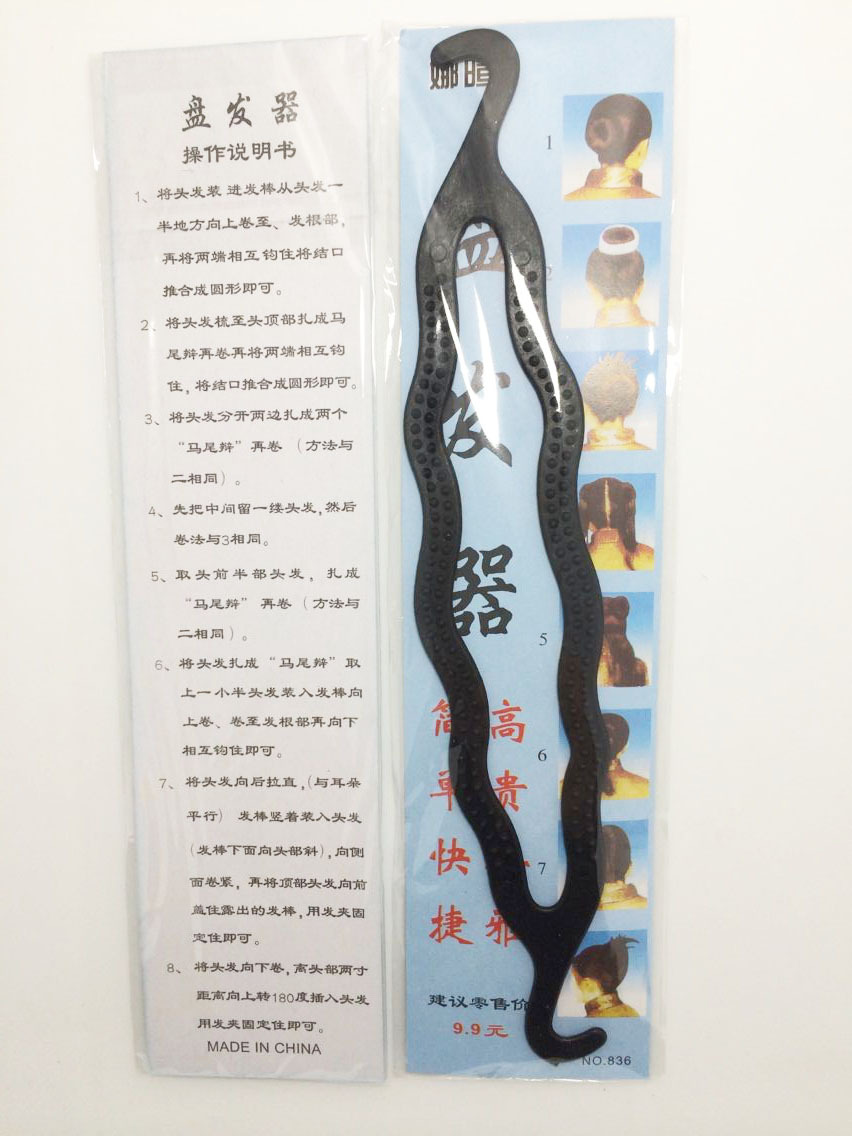 盘发器
操作说明书
1、将头发装 进发棒从头发一
半地方向上卷至、发根部，
再将两端相互钩住将结口
推合成圆形即可。
2、将头发梳至头顶部扎成马
尾辫再卷再将两端相互钩
住，将结口推合成圆形即可。
3、将头发分开两边扎成两个
“马尾辩”再卷（方法与
二相同）。
4、先把中间留一缕头发，然后
卷法与3相同。
5、取头前半部头发，扎成
“马尾辩”再卷（方法与
二相同）。
6、将头发扎成“马尾辩”取
上一小半头发装入发棒向
上卷、卷至发根部再向下
相互钩住即可。
7、将头发向后拉直，（与耳朵
平行）发棒竖着装入头发
（发棒下面向头部斜），向侧
面卷紧，再将顶部头发向前
盖住露出的发棒，用发夹固
定住即可。
8、将头发向下卷，离头部两寸
距离向上转180度插入头发
用发夹固定住即可。
MADE IN CHINA
娜
1
2
发
器
5
6
7
简单快捷
高贵
雅
建议零售价
9.9元
NO.836